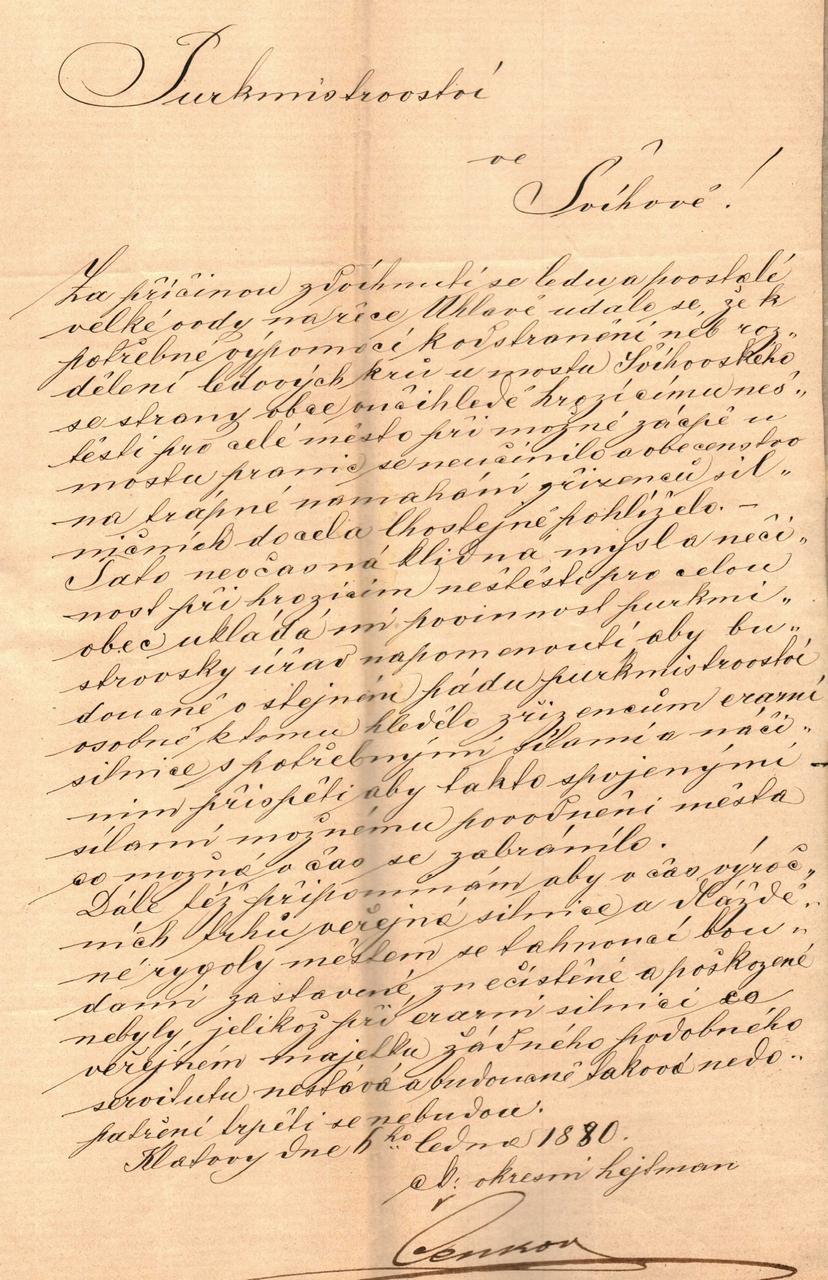 Purkmistrovství
ve
Švíhově!
Za příčinou zdvihnutí se ledu a povstalé
velké vody na řece Uhlavě udalo se, že k
potřebné výpomoci k odstranění neb roz„
dělení ledových krů u mostu Švihovského
se strany obce vnčihledě hrozícímu neš„
těsti pro celé město při možné zácpě u
mostu pranic se neučinilo a obecenstvo
na trápné namahání zřizenců sil„
ničních docela lhostejně pohlíželo. —
Tato neočavná klidná mysl a neči„
nost při hrozícím neštěsti pro celou
obec ukládá mi povinnost purkmi„
strovsky úřad napomenouti aby bu„
doucně o stejném pádu purkmistrovství
osobně k tomu hledělo zřizencům erarní
silnice s potřebnými silami a náči„
ním přispěti aby takto spojenými
silami možnému povodnění města
co možná v čas se zabránilo.
Dále též připomínám aby v čas výroč„
ních trhů veřejná silnice a dlážde„
né rygoly městem se tahnoucí bou„
dami zastavené, znečistěné a poškozené
nebyly jelikož při erarni silnici co
veřejném majetku žádneho podobného
servitutu nestává a budoucně taková nedo„
patření trpěti se nebudou.
Klatovy dne 6ho ledna 1880.
okresni hejtman